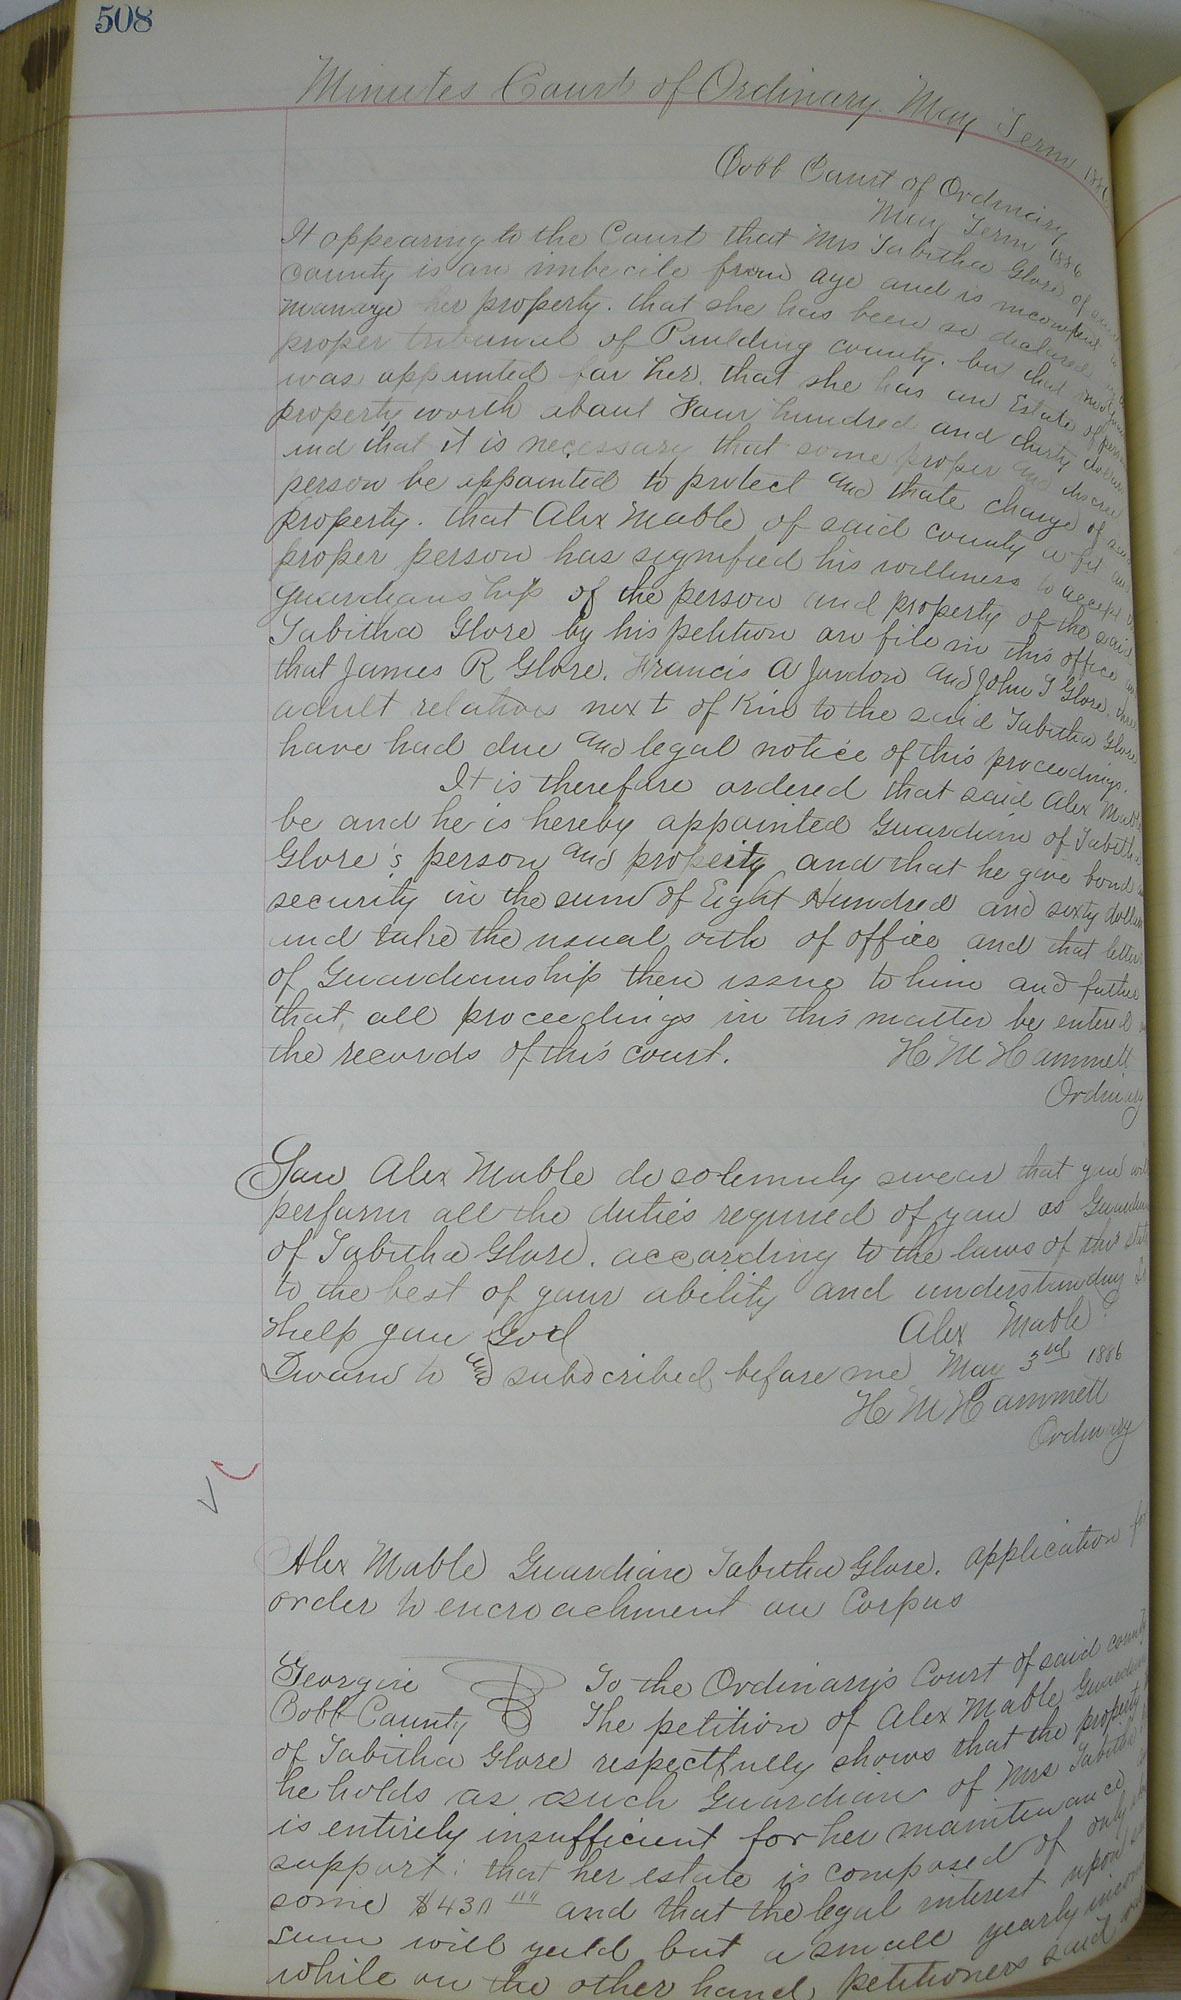 508
Minutes Court of Ordinary May Term 1886
Cobb Court of Ordinary
May Term 1886
It appearing to the Court that Mrs Tabitha Glore of said
county is an imbecile from age and is incompetent to
manage her property. that she has been so declared
proper tribunal of Paulding county. but that
was appointed for her. that she has an Estate of
property worth about Four hundred and thirty dollars
and that it is necessary that some proper and discreet
person be appointed to protect and thate charge of said
property. that Alex Mable of said county a fit and
proper person has signified his williness to accept
Guardianship of the person and property of the said
Tabitha Glore by his petition on file in this office
that James R Glore. Francis A Jordon and John T Glore.
adult relatives next of Kin to the said Tabitha Glore
have had due and legal notice of this proceedings.
It is therefore ordered that said Alex Mable
be and he is hereby appointed Guardian of Tabitha
Glore's person and property and that he give bond
security in the sum of Eight Hundred and sixty dollars
and take the usual oath of office and that letters
of Guardianship then issue to him and futher
that all proceedings in this matter be entered
the records of this court. H M Hammett
Ordinary
You Alex Mable do solemnly swear that you will
perform all the duties required of you as Guardian
of Tabitha Glore. according to the laws of this state
to the best of your ability and understanding So
help you God Alex Mable
Sworn to and subscribed before me May 3rd 1886
H M Hammett
Ordinary
Alex Mable Guardian Tabitha Glore. application for
order to encroachment on Corpus
Georgia To the Ordinary's Court of said county
Cobb County The petition of Alex Mable Guardian
of Tabitha Glore respectfully shows that the property
he holds as such Guardian of Mrs Tabitha
is entirely insufficient for her maintenance
support: that her estate is composed of only
some $430 and that the legal interest upon
sum will yeild but a small yearly income
while on the other hand, petitioners said